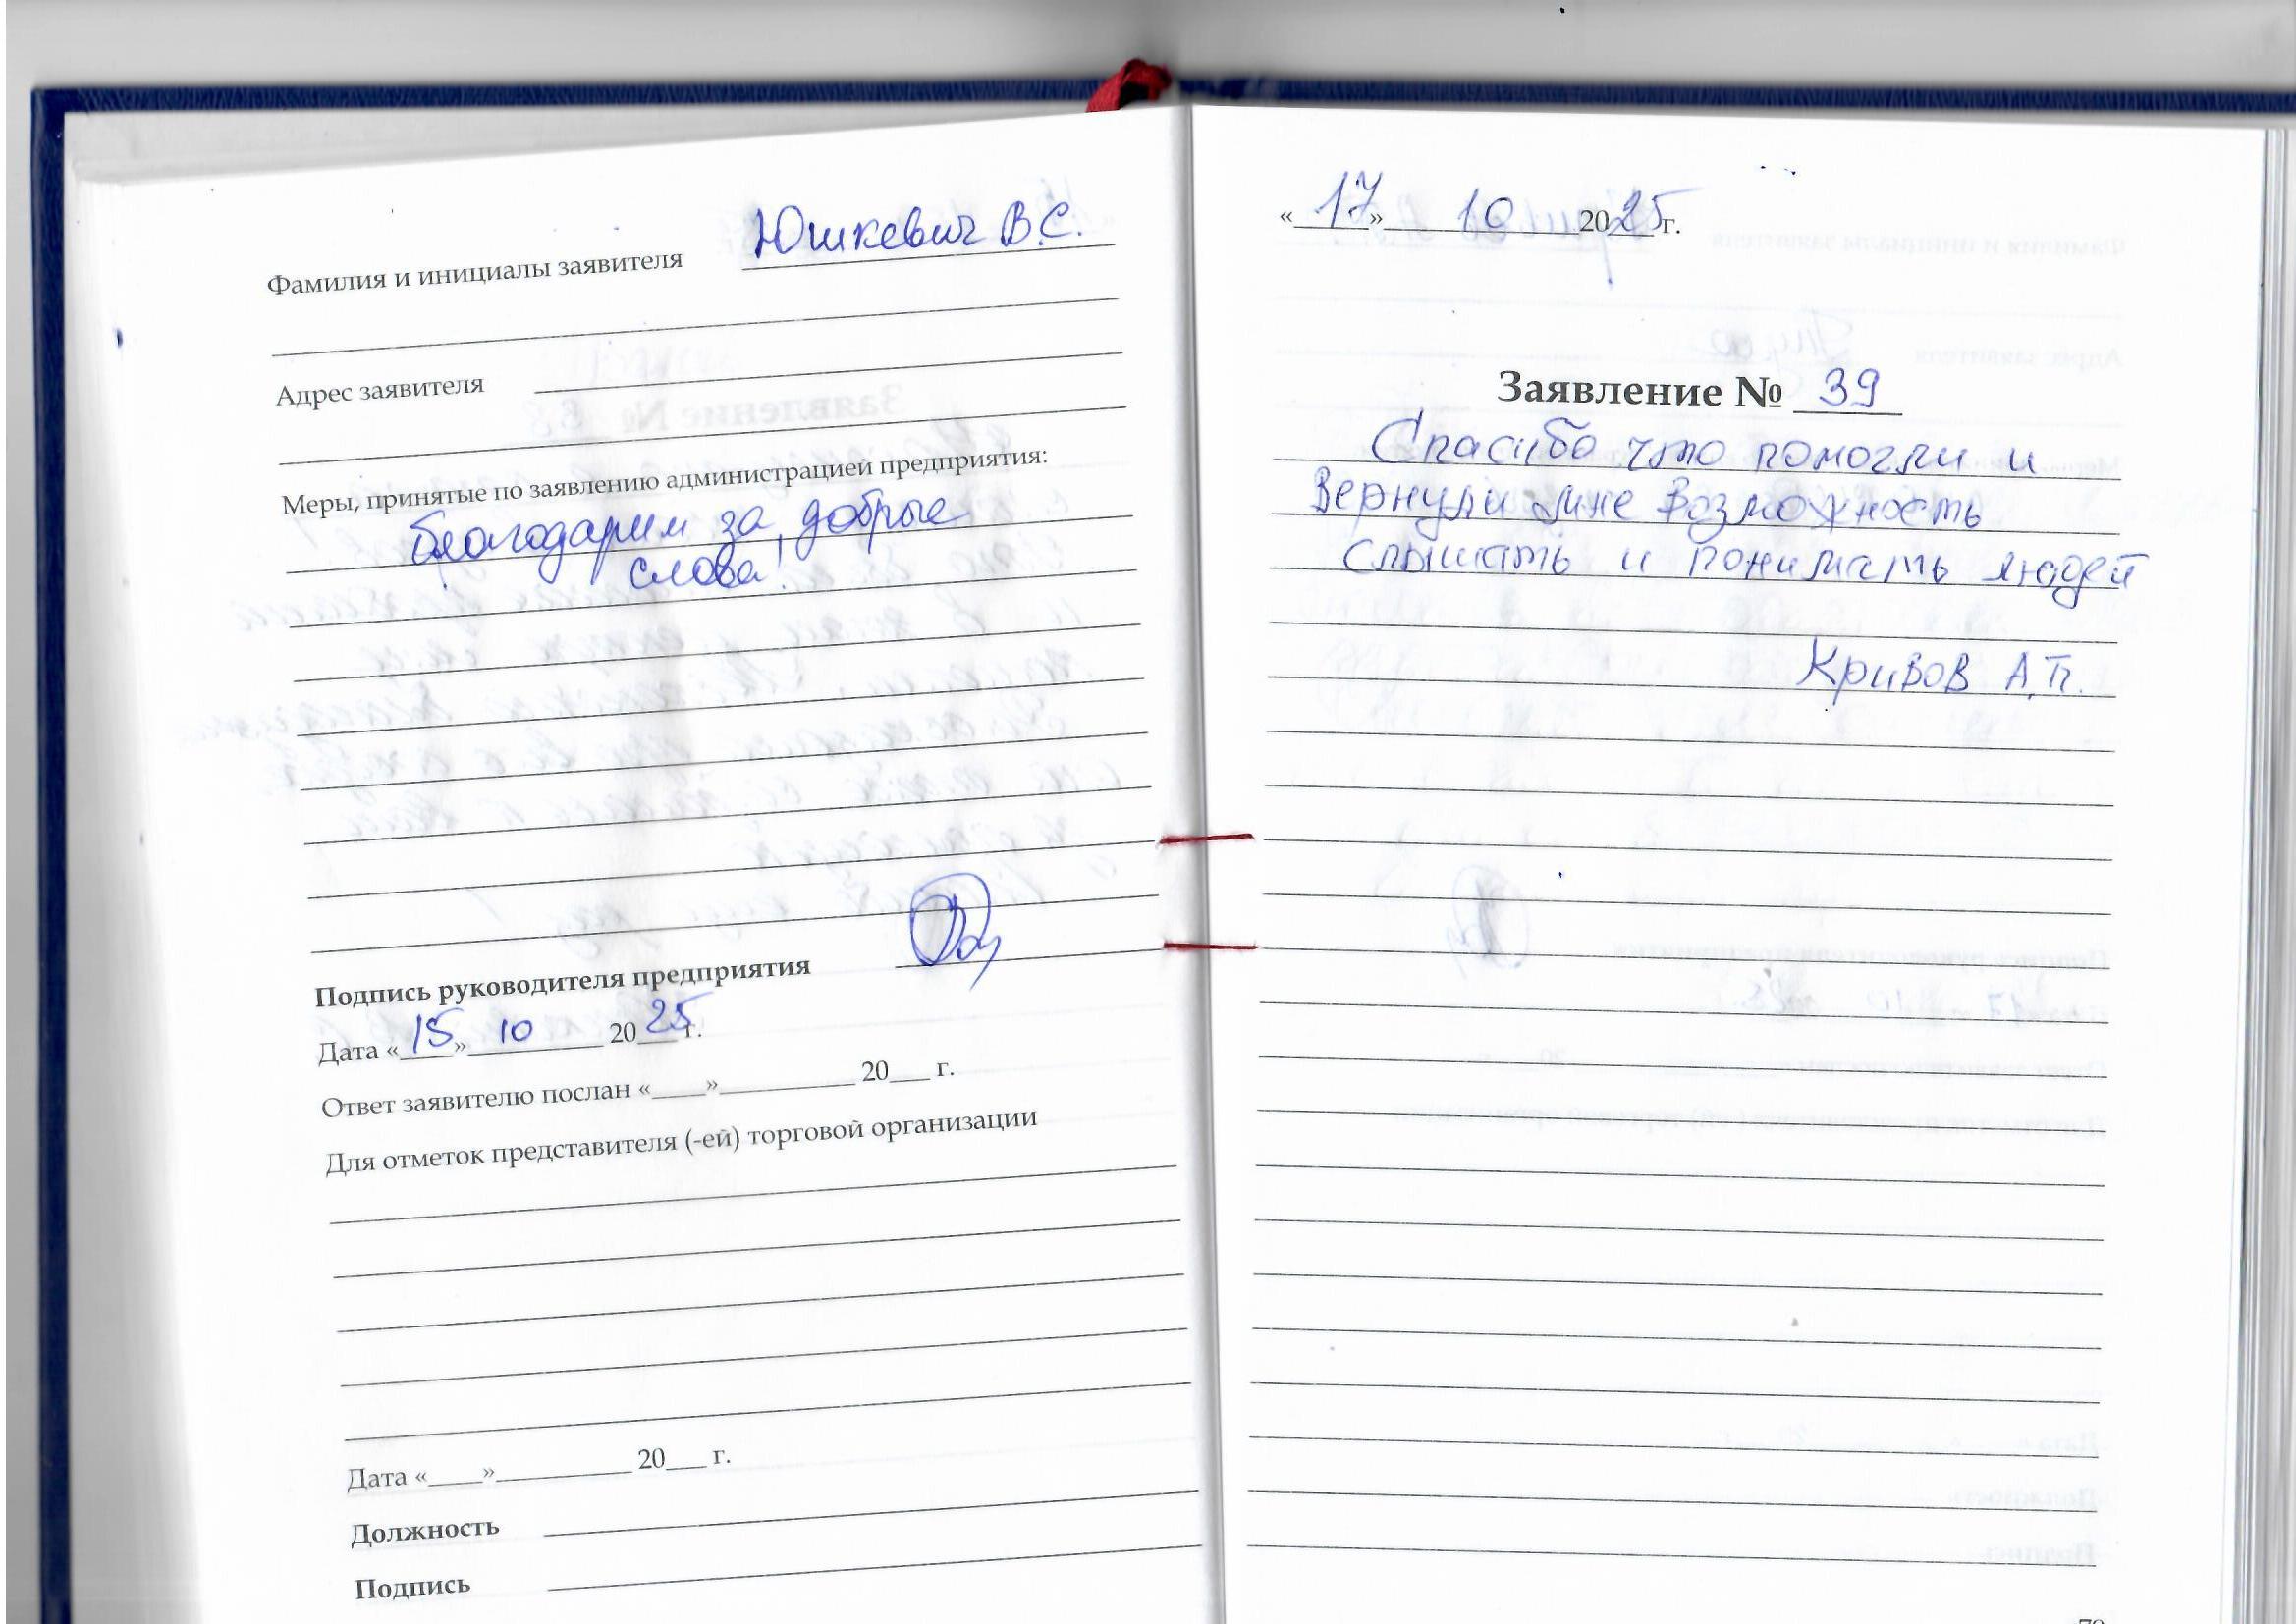 Фамилия и инициалы заявителя Юшкевич В.С.
Адрес заявителя
Меры, принятые по заявлению администрацией предприятия:
благодарим за добрые
слова!
Подпись руководителя предприятия
Дата «15» 10 2025 г.
Ответ заявителю послан «____»__________ 20___ г.
Для отметок представителя (-ей) торговой организации
Дата «____»__________ 20___ г.
Должность
Подпись
«17» 10 2025 г.
Заявление № 39
Спасибо что помогли и
Вернули мне Возможность
слышать и понимать людей
Кривов А.П.